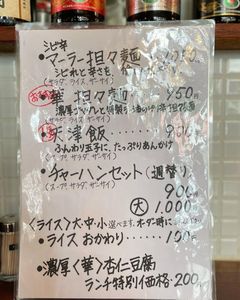 シビ辛
・マーラー担々麺
シビれと辛さを
(サラダ、ライス、ザーサイ)
華 担々麺 950
(サラダ、ライス、ザーサイ)
天津飯
ふんわり玉子に、たっぷりあんかけ
(スープ、サラダ、ザーサイ)
・チャーハンセット(週替り)
(スープ、サラダ、ザーサイ)
900
大 1,000
〈ライス〉大・中・小 選べます。オーダー時に
・ライス おかわり……100円
・濃厚〈華〉杏仁豆腐
ランチ特別価格・200